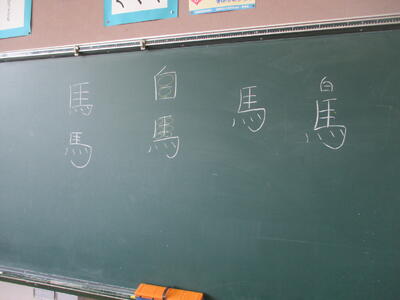 白馬
馬
白馬
馬馬